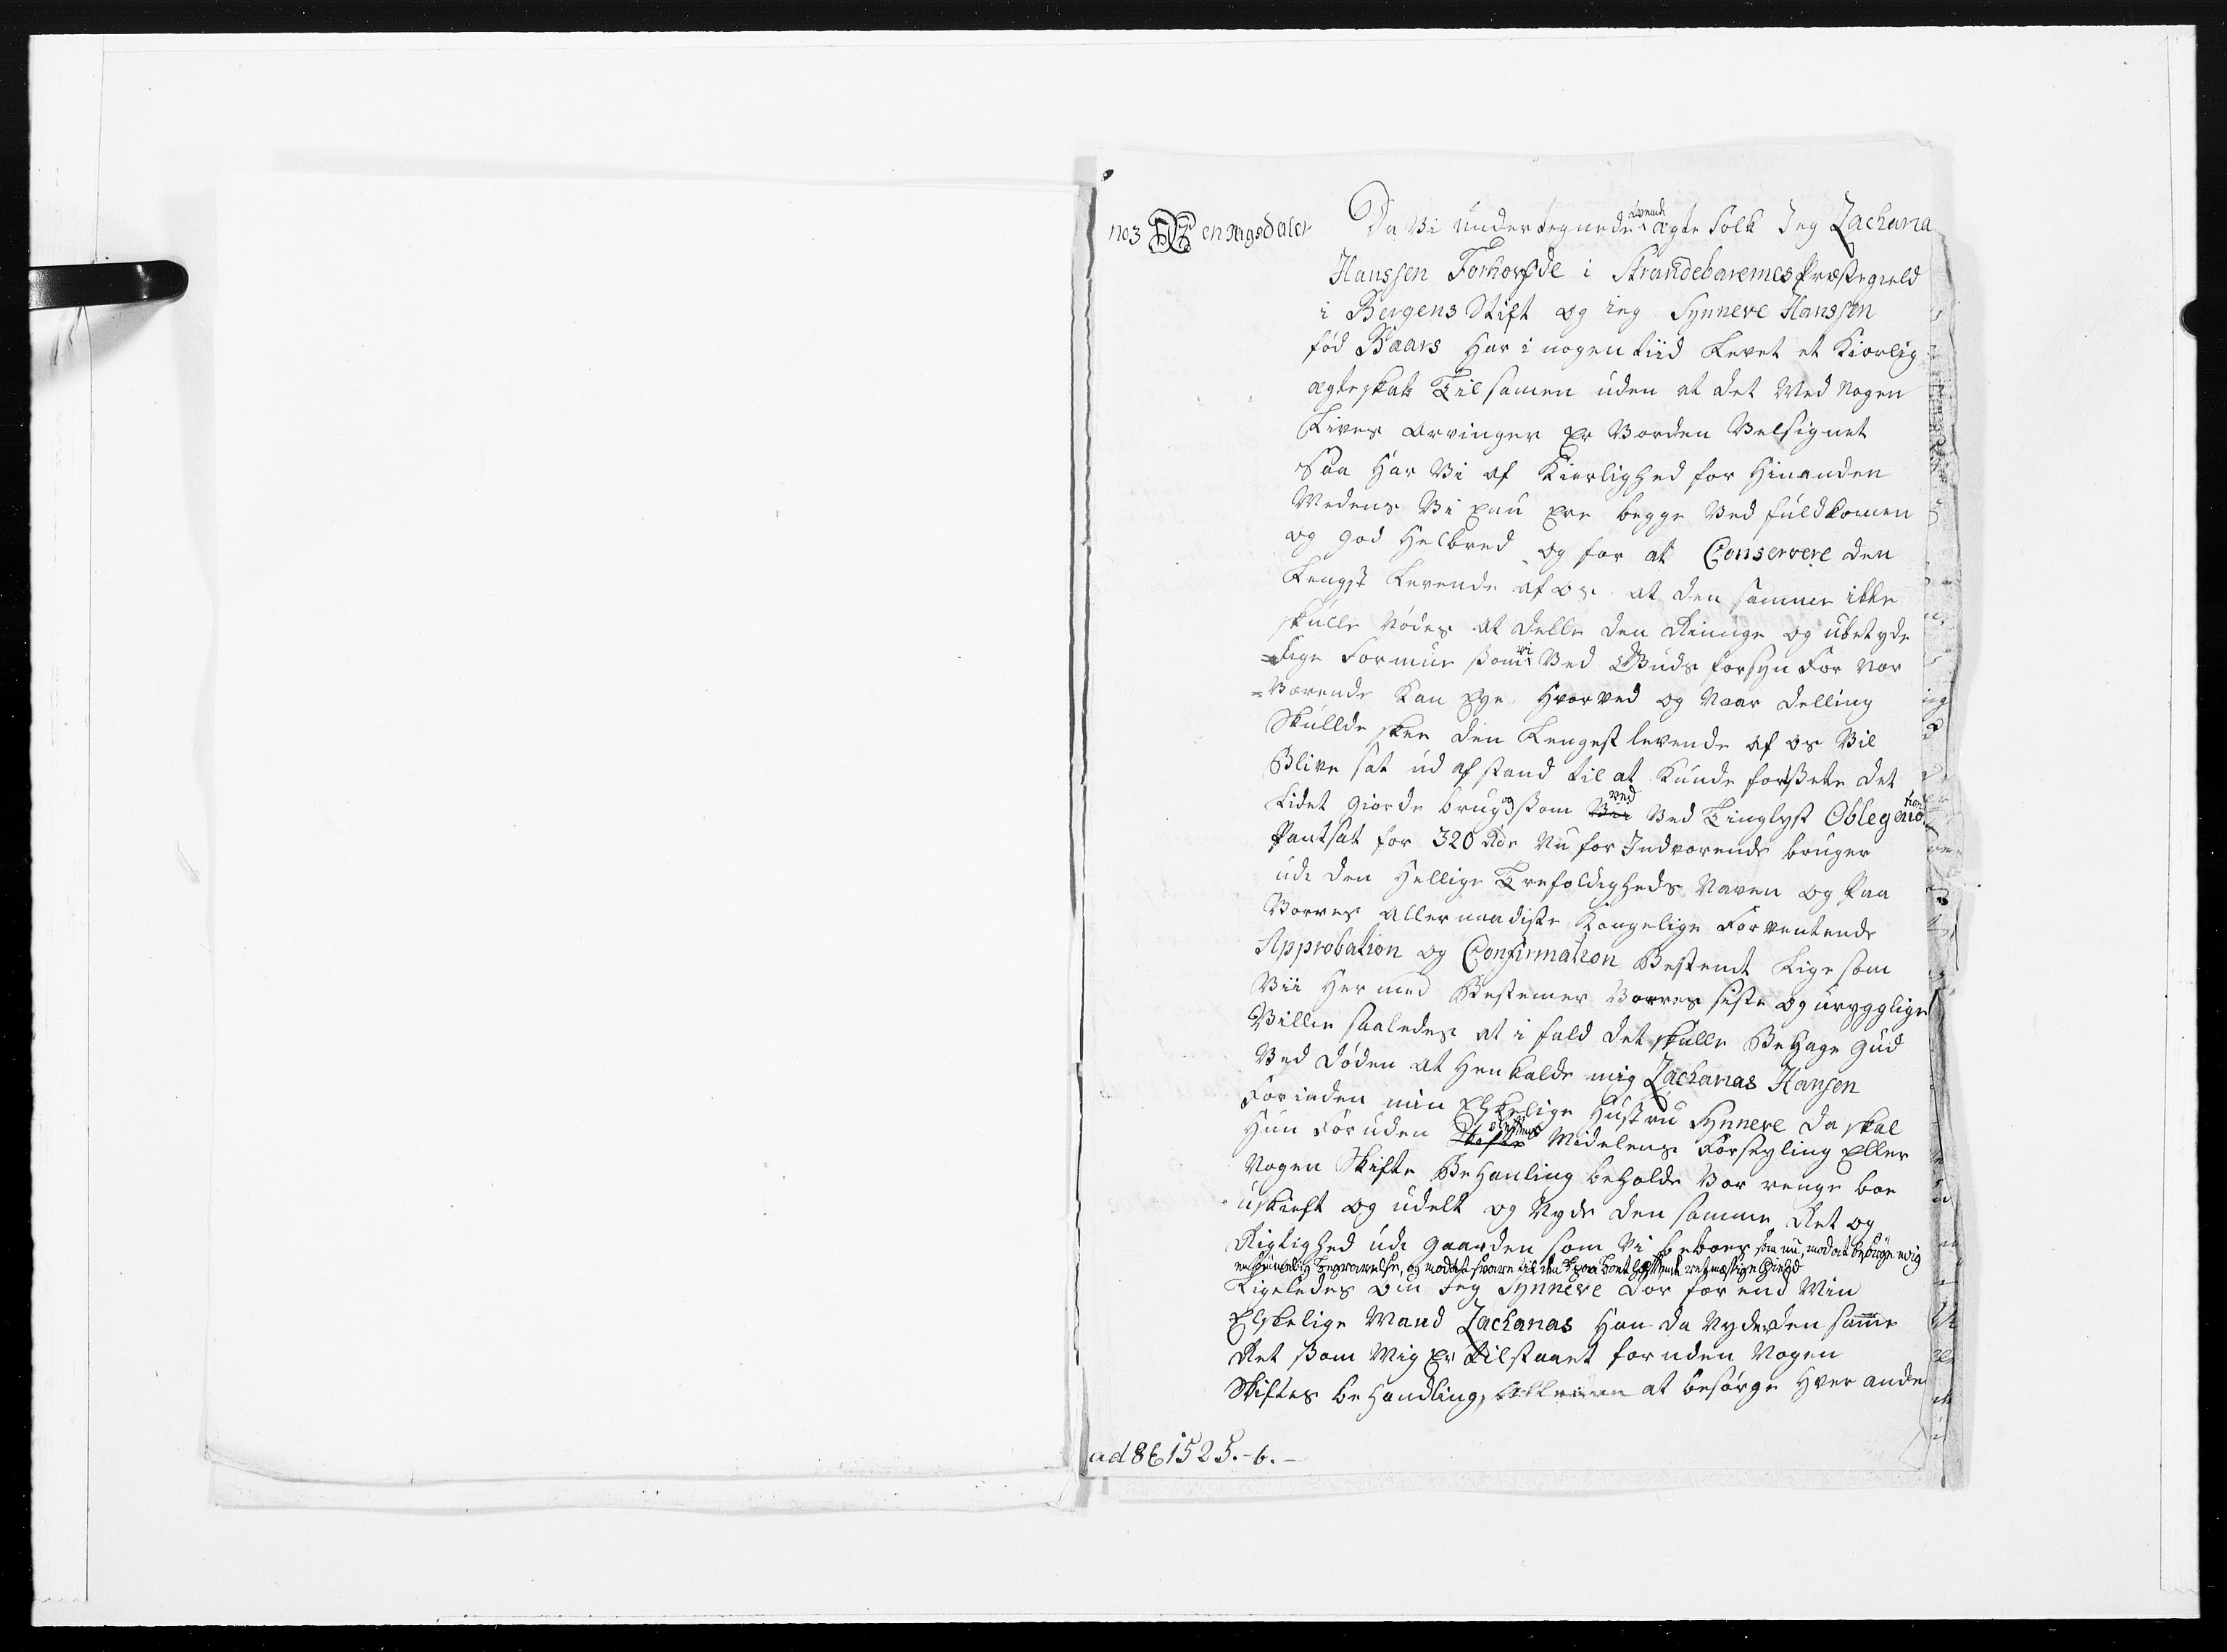 no3 en Rigsdaler
Da Vi undertegnede tvende ægte folk Jeg Zacharia
Hanssen Torhorsde i Strandebaremes Præstegield
i Bergens Stift og ieg Synneve Hanssen
fød Baars Har i nogen tiid Levet et Kiærlig
ægteskab Tilsamen uden at det Med Nogen
Lives Arvinger Er Vorden Velsignet
Saa Har Vi af Kierlighed for Hinanden
Medens Vi Enu Ere begge Ved fuldkomen
og god Helbred og for at Conservere den
Lengst Levende af os at den samme ikke
skulle Nødes at delle den Ringe og ubetyde
=lige Formue som vi Ved Guds forsyn For Nær
=Værende Kan Eye, Hvorved og Naar delling
Skullde skee den Lengest levende af os Vil
Blive sat ud af stand til at Kunde forssette det
Lidet giorde brug og som ved Ved Tinglyst Oblegation
Pantsat for 320 Rdr Nu for Indværende bruger
udi den Hellige Trefoldigheds Navn og Paa
Vorres allernaadiste Kongelige Forventende
Approbation og Confirmation Bestemt Lige som
Vii Her med Bestemer Vorres siste og uryggelige
Villie saaledes at i fald det skulle Behage Gud
Ved Døden at Henkalde mig Zacharias Hansen
Forinden min Elskelige Hustru Synneve da skal
Hun Foruden Midelens Forseyling Eller
Nogen Skifte Behanling beholde Vor ringe boe
uskieft og udelt og Nyde den samme Ret og
Rigtighed udi gaarden som Vi beboer som nu, mod at besørge mig
en sømmelig Begravelse, og mod at svare til den paa Boet heftende retmæssige Gield
Ligeledes om Jeg Synneve Dør før end Min
Elskelige Mand Zacharias Han da Nyder den samme
Ret som Mig Er Tilstaaet foruden Nogen
Skiftes beHandling, at besørge Hver ande
ad 861525.-6.-